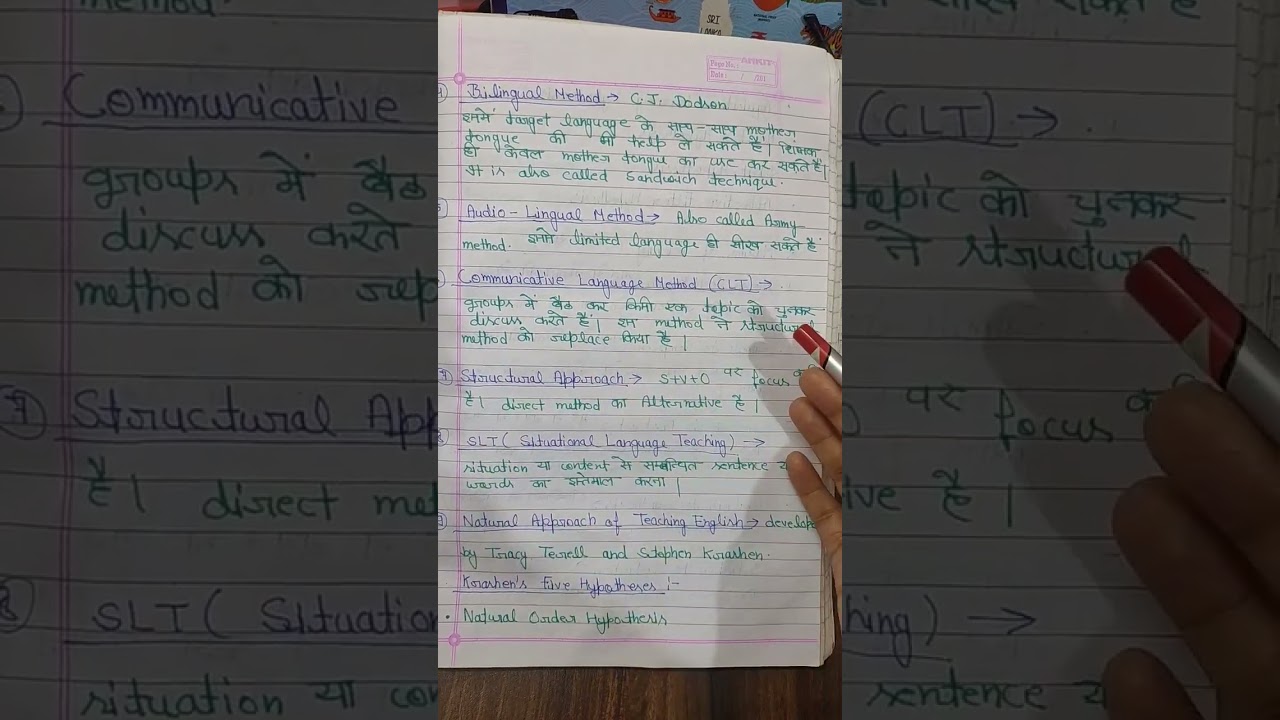 SRI
LANKA
Page No.:
Date: / /201
Bilingual Method → C.J. Dodson
इसमें target language के साथ-साथ mother
tongue की भी help ले सकते हैं। शिक्षक
ही केवल mother tongue का use कर सकते हैं।
It is also called Sandwich technique.
Audio-Lingual Method → Also called Army
method. इसमें limited language ही सीख सकते हैं
Communicative Language Method (CLT) → .
groups में बैठ कर किसी एक topic को चुनकर
discuss करते हैं। इस method ने structural
method को replace किया है।
7) Structural Approach → S+V+O पर focus
है। direct method का Alternative है।
8) SLT (Situational Language Teaching) →
situation या content से सम्बन्धित sentence य
words का इस्तेमाल करना।
9) Natural Approach of Teaching English → develope
by Tracy Terrell and Stephen Krashen.
Krashen's five Hypotheses :-
• Natural Order Hypothesis